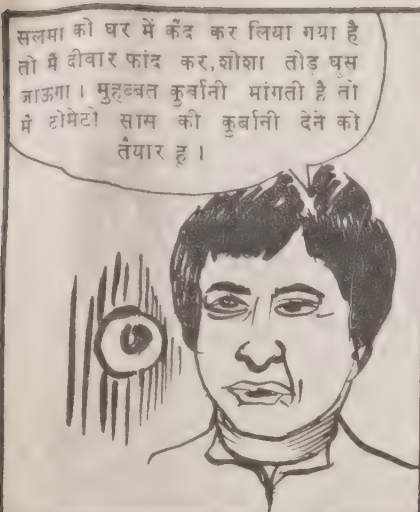 सलमा को घर में कैद कर लिया गया है
तो मैं दीवार फांद कर, शीशा तोड़ घुस
जाऊगा। मुहब्बत कुर्बानी मांगती है तो
मैं टोमेटो! सास की कुर्बानी देने को
तैयार हू।